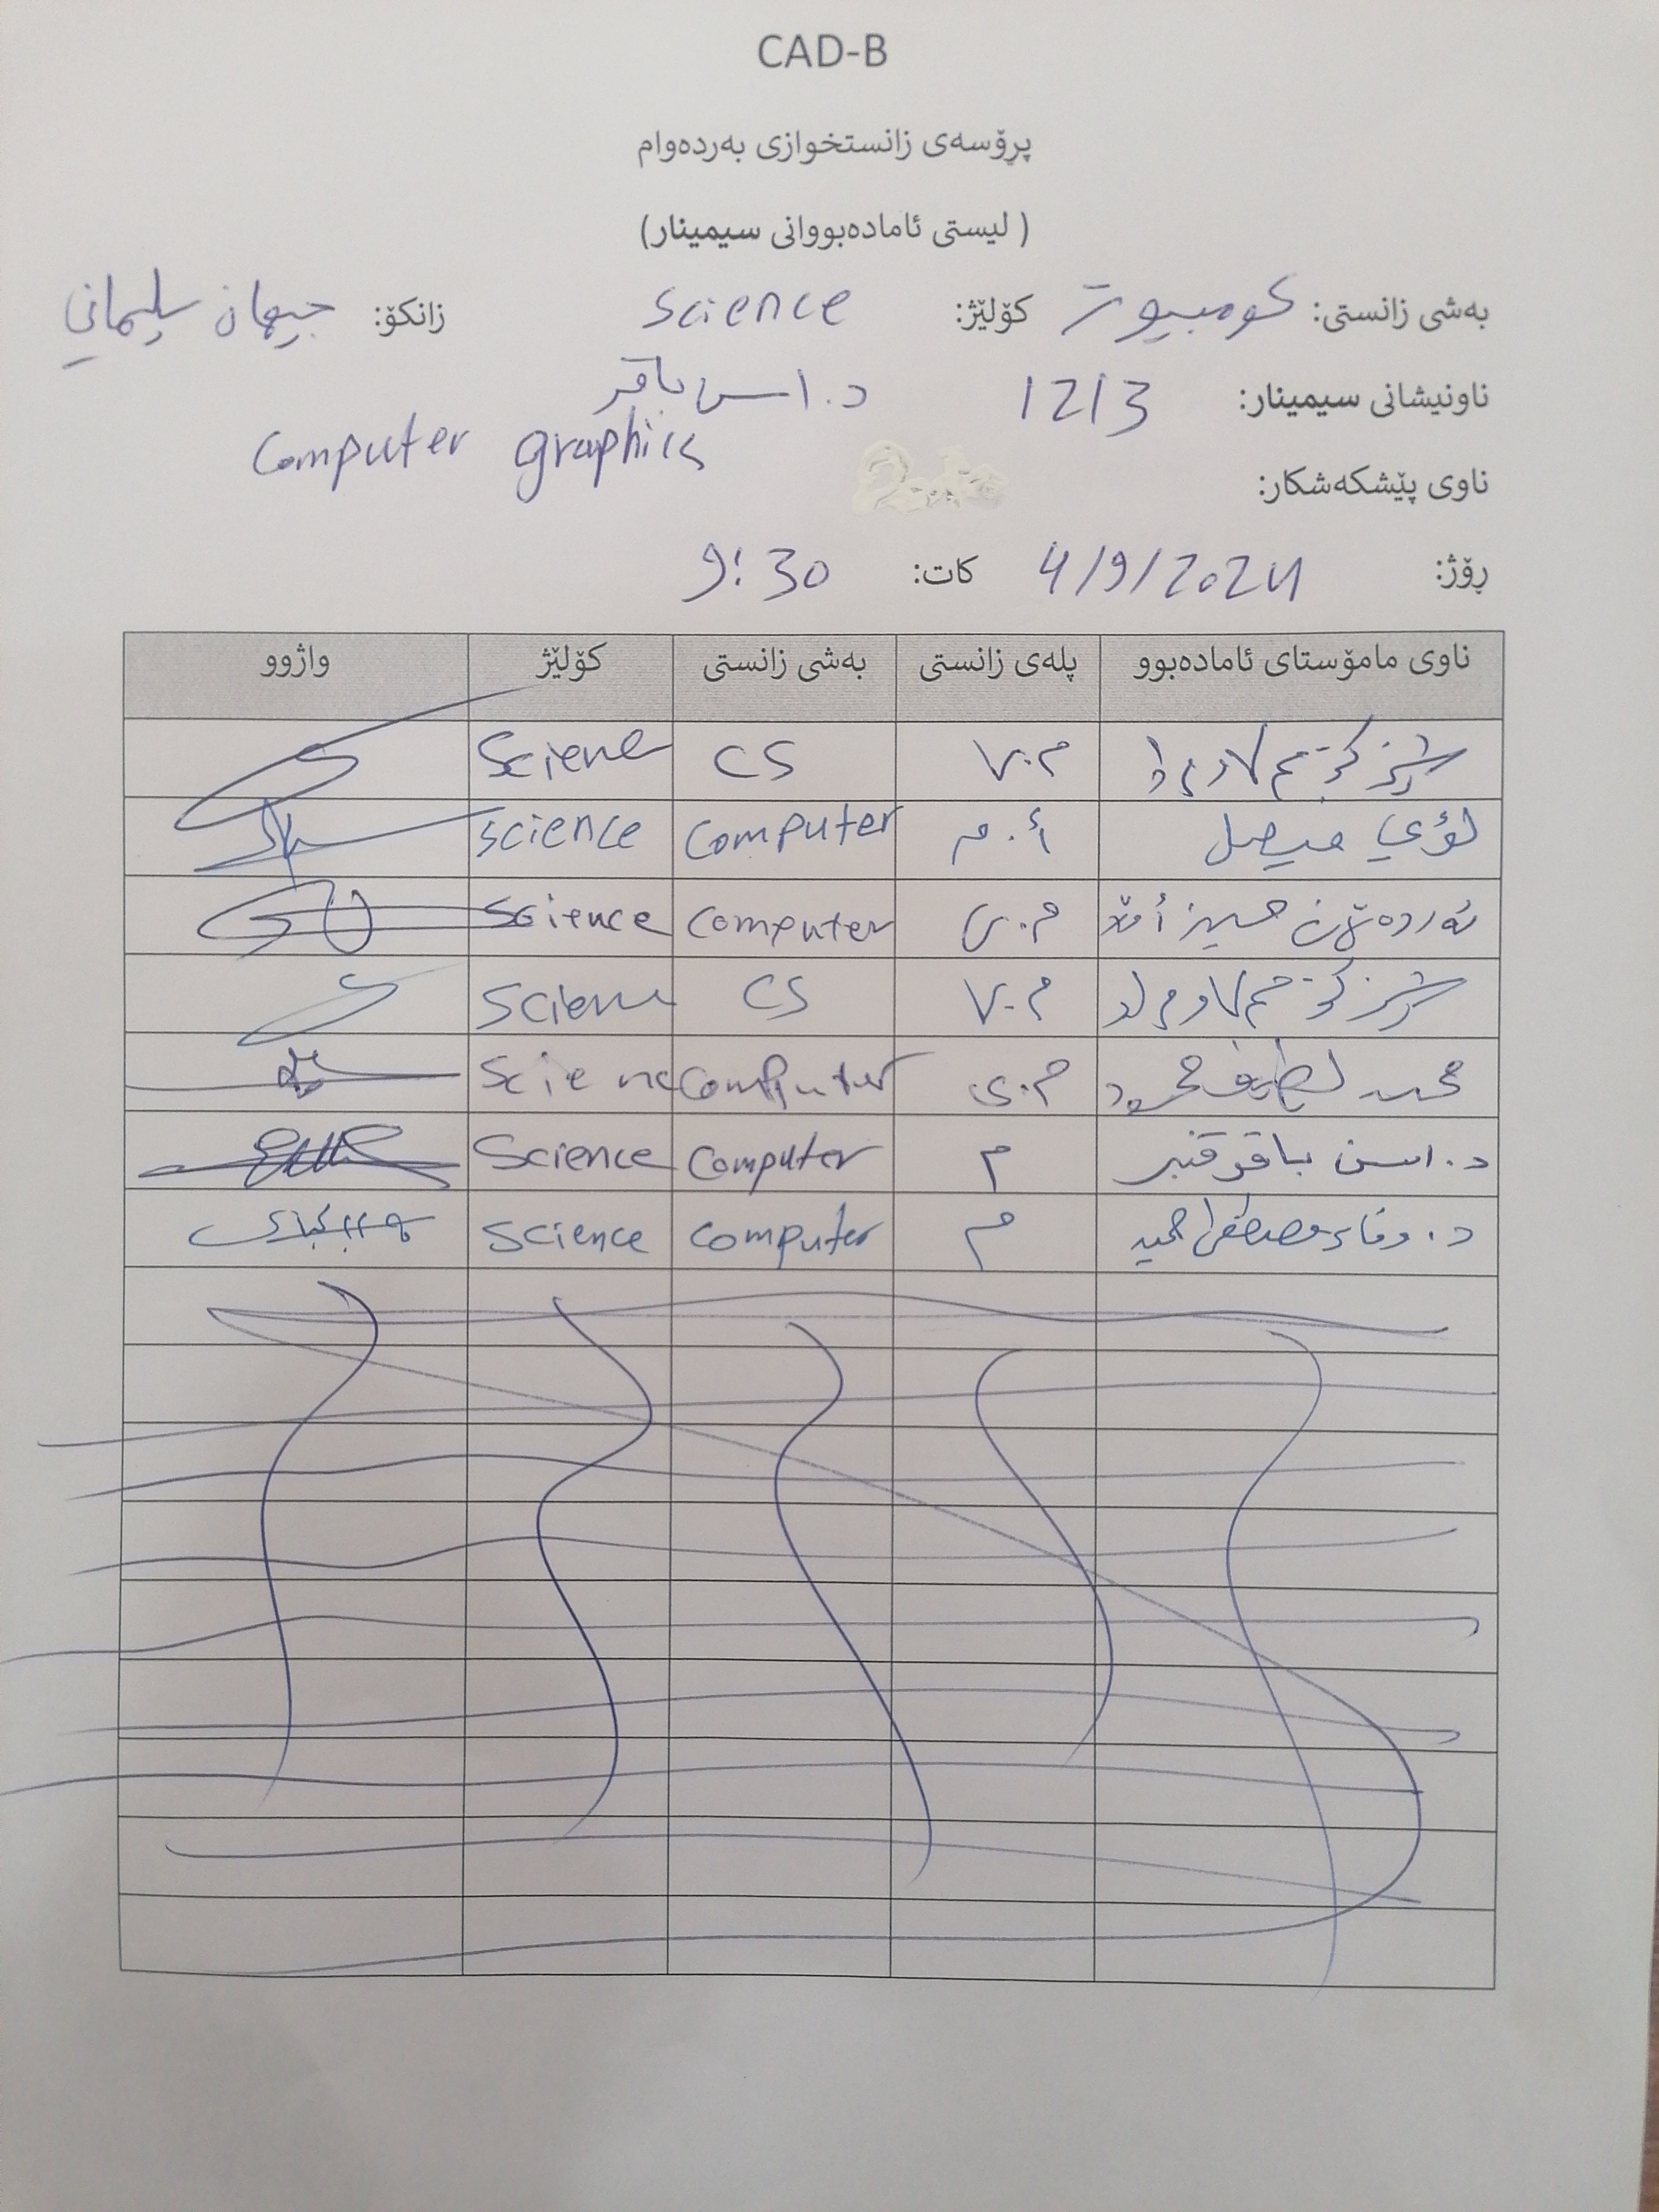 CAD-B
پرۆسەی زانستخوازی بەردەوام
( لیستی ئامادەبووانی سیمینار)
بەشی زانستی: کومبیوتر کۆلێژ: Science زانکۆ: جیهان سلیمانی
ناونیشانی سیمینار: 1213 د. اسن باقر
Computer graphics
ناوی پێشکەشکار:
ڕۆژ: 4/9/2024 کات: 9:30
ناوی مامۆستای ئامادەبوو پلەی زانستی بەشی زانستی کۆلێژ واژوو
CS Science
لؤي فيصل أ.م Computer Science
م.ی Computer Science
CS Science
محمد لطيف محمود م.ی Computer Science
د. اسن باقر قنبر م Computer Science
د. وفاء مصطفى حميد م Computer Science